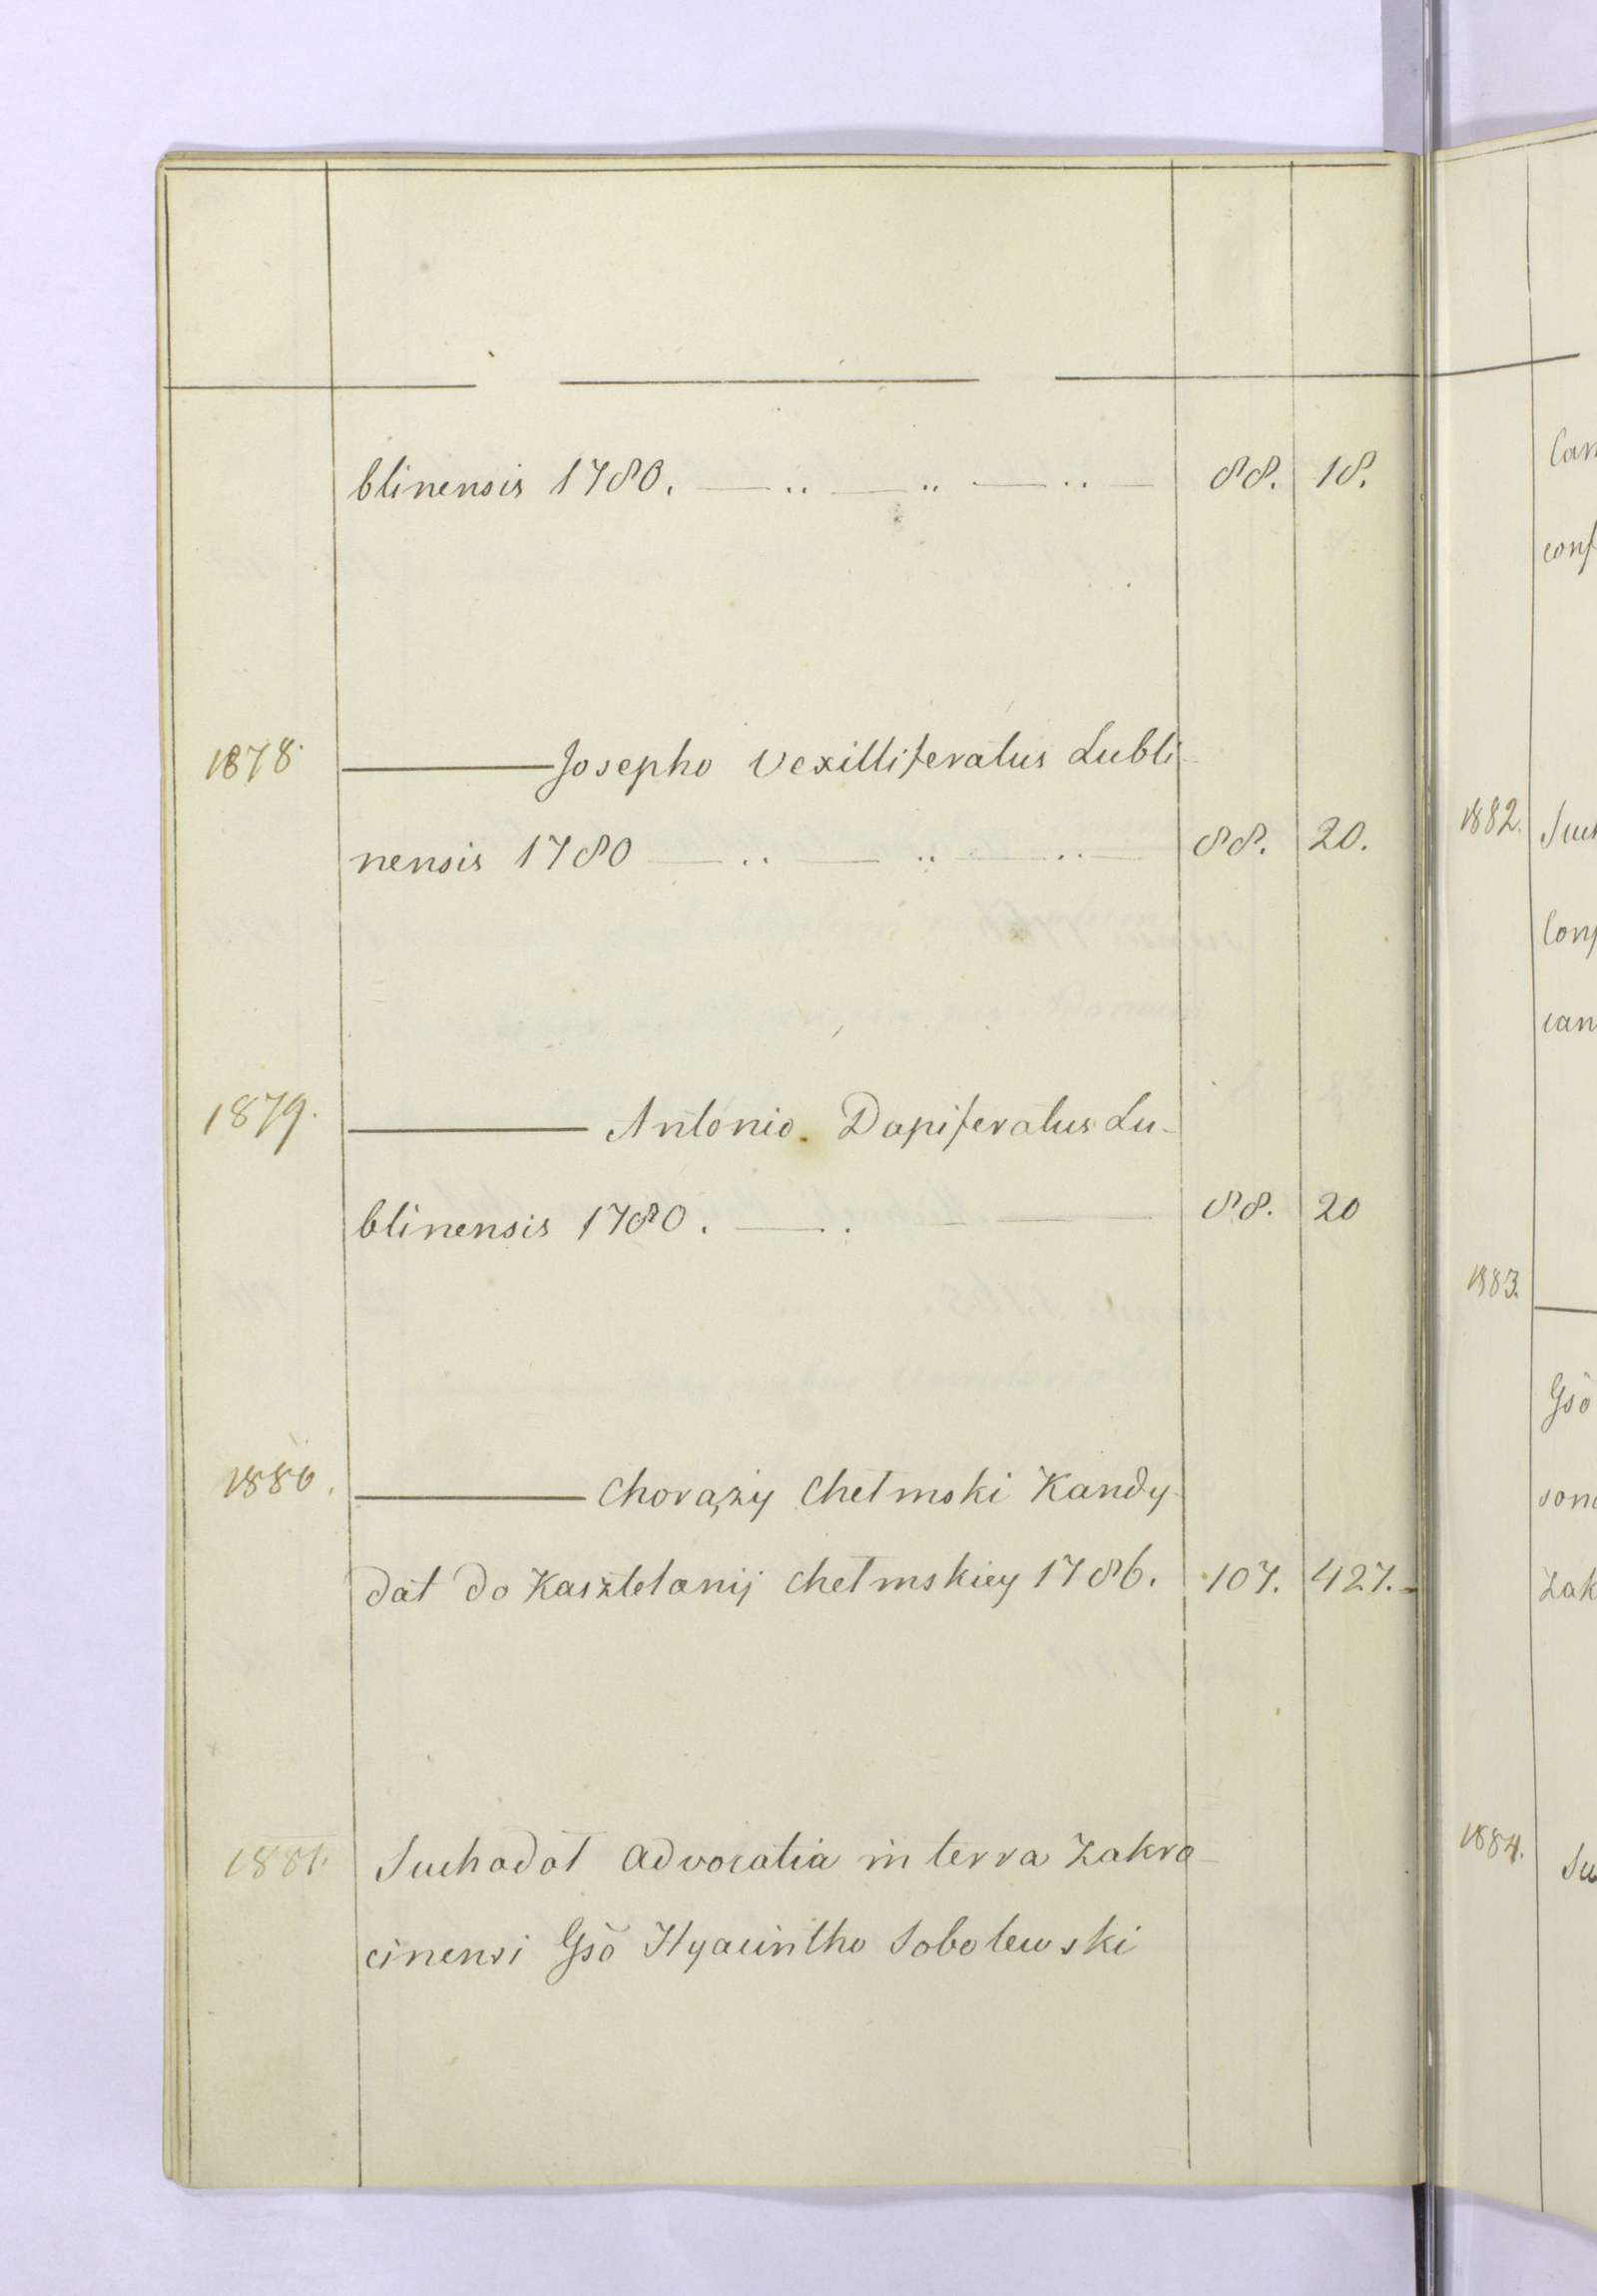 blinensis 1780. 88. 18.
1878. Josepho Vexilliferatus Lubli-
nensis 1780 88. 20.
1879. Antonio Dapiferatus Lu-
blinensis 1780. 88. 20
1880. Chorąży Chełmski Kandy-
dat do Kasztelanij Chełmskiey 1786. 107. 427.
1881. Suchodoł Advocatia in terra Zakro-
cinensi Gso Hyacintho Sobolewski
conf
1882.
1883.
Gso
Zak
1884.